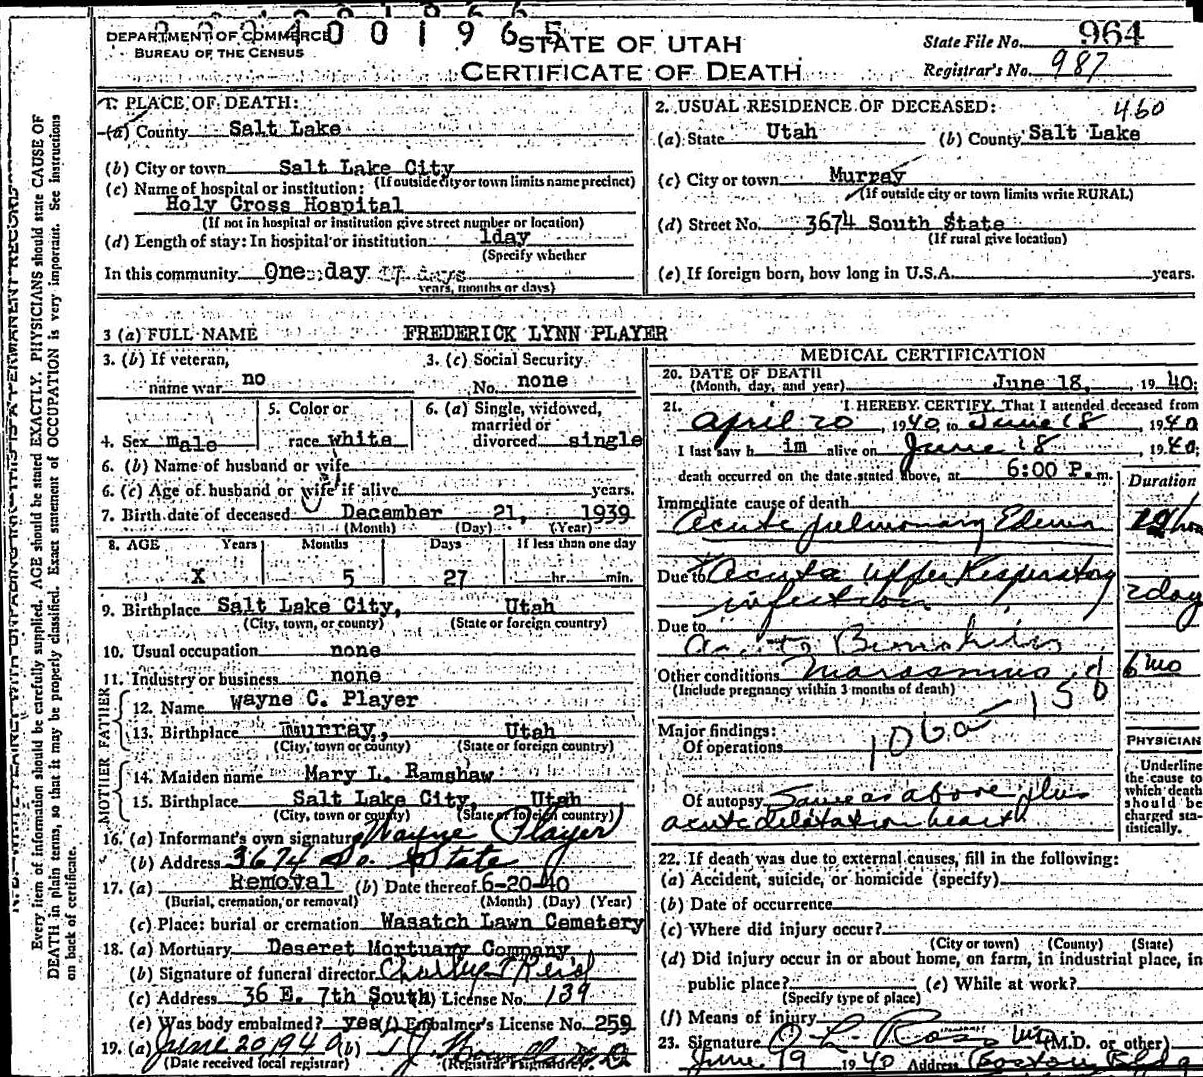 DEPARTMENT OF COMMERCE
BUREAU OF THE CENSUS
001965
STATE OF UTAH
CERTIFICATE OF DEATH
State File No. 964
Registrar's No. 987
1. PLACE OF DEATH:
(a) County Salt Lake
(b) City or town Salt Lake City
(If outside city or town limits name precinct)
(c) Name of hospital or institution:
Holy Cross Hospital
(If not in hospital or institution give street number or location)
(d) Length of stay: In hospital or institution 1day
(Specify whether
In this community One day 17 days
years, months or days)
2. USUAL RESIDENCE OF DECEASED: 460
(a) State Utah (b) County Salt Lake
(c) City or town Murray
(If outside city or town limits write RURAL)
(d) Street No. 3674 South State
(If rural give location)
(e) If foreign born, how long in U.S.A. years.
3 (a) FULL NAME FREDERICK LYNN PLAYER
3. (b) If veteran,
name war no
3. (c) Social Security
No. none
4. Sex male
5. Color or
race white
6. (a) Single, widowed,
married or
divorced single
6. (b) Name of husband or wife
6. (c) Age of husband or wife if alive years.
7. Birth date of deceased December 21, 1939
(Month) (Day) (Year)
8. AGE Years Months Days If less than one day
X 5 27 hr. min.
9. Birthplace Salt Lake City, Utah
(City, town, or county) (State or foreign country)
10. Usual occupation none
11. Industry or business none
FATHER
12. Name Wayne C. Player
13. Birthplace Murray, Utah
(City, town or county) (State or foreign country)
MOTHER
14. Maiden name Mary L. Ramshaw
15. Birthplace Salt Lake City, Utah
(City, town or county) (State or foreign country)
16. (a) Informant's own signature Wayne Player
(b) Address 3674 So. State
17. (a) Removal (b) Date thereof 6-20-40
(Burial, cremation, or removal) (Month) (Day) (Year)
(c) Place: burial or cremation Wasatch Lawn Cemetery
18. (a) Mortuary Deseret Mortuary Company
(b) Signature of funeral director
(c) Address 36 E. 7th South License No. 139
(e) Was body embalmed? yes (f) Embalmer's License No. 259
19. (a) June 20 1940 (b)
(Date received local registrar) (Registrar's signature)
MEDICAL CERTIFICATION
20. DATE OF DEATH
(Month, day, and year) June 18, 1940;
21. I HEREBY CERTIFY, That I attended deceased from
April 20, 1940 to June 18, 1940
I last saw h im alive on June 18, 1940;
death occurred on the date stated above, at 6:00 P. m.
Duration
Immediate cause of death
Acute pulmonary Edema
Due to Acute upper Respiratory
infection 2day
Due to
Acute Bronchitis
Other conditions Marasmus 6 mo
(Include pregnancy within 3 months of death)
158
Major findings:
Of operations 106a
PHYSICIAN
Underline
the cause to
which death
should be
charged sta-
tistically.
Of autopsy Same as above plus
acute dilatation heart
22. If death was due to external causes, fill in the following:
(a) Accident, suicide, or homicide (specify)
(b) Date of occurrence
(c) Where did injury occur?
(City or town) (County) (State)
(d) Did injury occur in or about home, on farm, in industrial place, in
public place? (e) While at work?
(Specify type of place)
(f) Means of injury
23. Signature O. L. Ross M.D. (M.D. or other)
June 19 1940 Address Boston Bldg
Every item of information should be carefully supplied. AGE should be stated EXACTLY. PHYSICIANS should state CAUSE OF
DEATH in plain terms, so that it may be properly classified. Exact statement of OCCUPATION is very important. See instructions
on back of certificate.